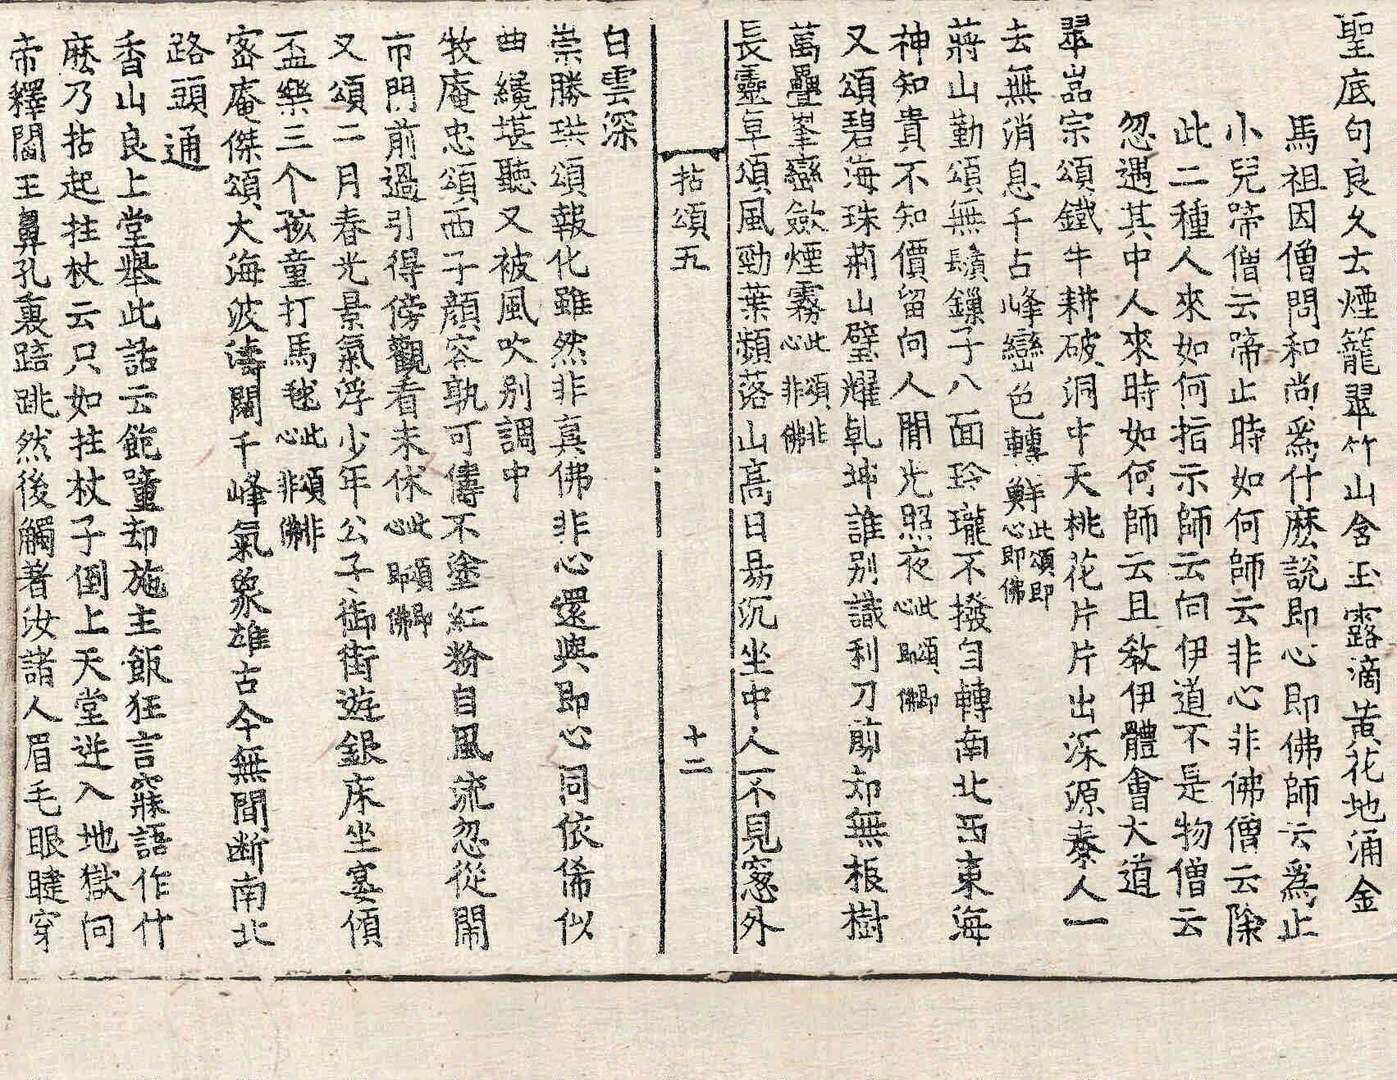 聖底句良久云煙籠翠竹山含玉露滴黃花地涌金
馬祖因僧問和尚爲什麽說即心即佛師云爲止
小兒啼僧云啼止時如何師云非心非佛僧云除
此二種人來如何指示師云向伊道不是物僧云
忽遇其中人來時如何師云且教伊體會大道
翠嵓宗頌鐵牛耕破洞中天桃花片片出深源秦人一
去無消息千古峰巒色轉鮮此頌即心即佛
蔣山勤頌無鬚鏁子八面玲瓏不撥自轉南北西東海
神知貴不知價留向人間光照夜此頌即心即佛
又頌碧海珠荊山璧耀乾坤誰別識利刀剪却無根樹
萬疊峯巒斂煙霧此頌非心非佛
長靈卓頌風勁葉頻落山高日易沉坐中人不見窓外
拈頌五 十二
白雲深
崇勝珙頌報化雖然非真佛非心還與即心同依俙似
曲纔堪聽又被風吹別調中
牧庵忠頌西子顏容孰可儔不塗紅粉自風流忽從閙
市門前過引得傍觀看未休此頌即心即佛
又頌二月春光景氣浮少年公子御街遊銀床坐宴傾
盃樂三个孩童打馬毬此頌非心非佛
密庵傑頌大海波濤闊千峰氣象雄古今無間断南北
路頭通
香山良上堂舉此話云飽䭔却施主飯狂言寐語作什
麽乃拈起拄杖云只如拄杖子倒上天堂迸入地獄向
帝釋閻王鼻孔裏踣跳然後觸著汝諸人眉毛眼睫穿